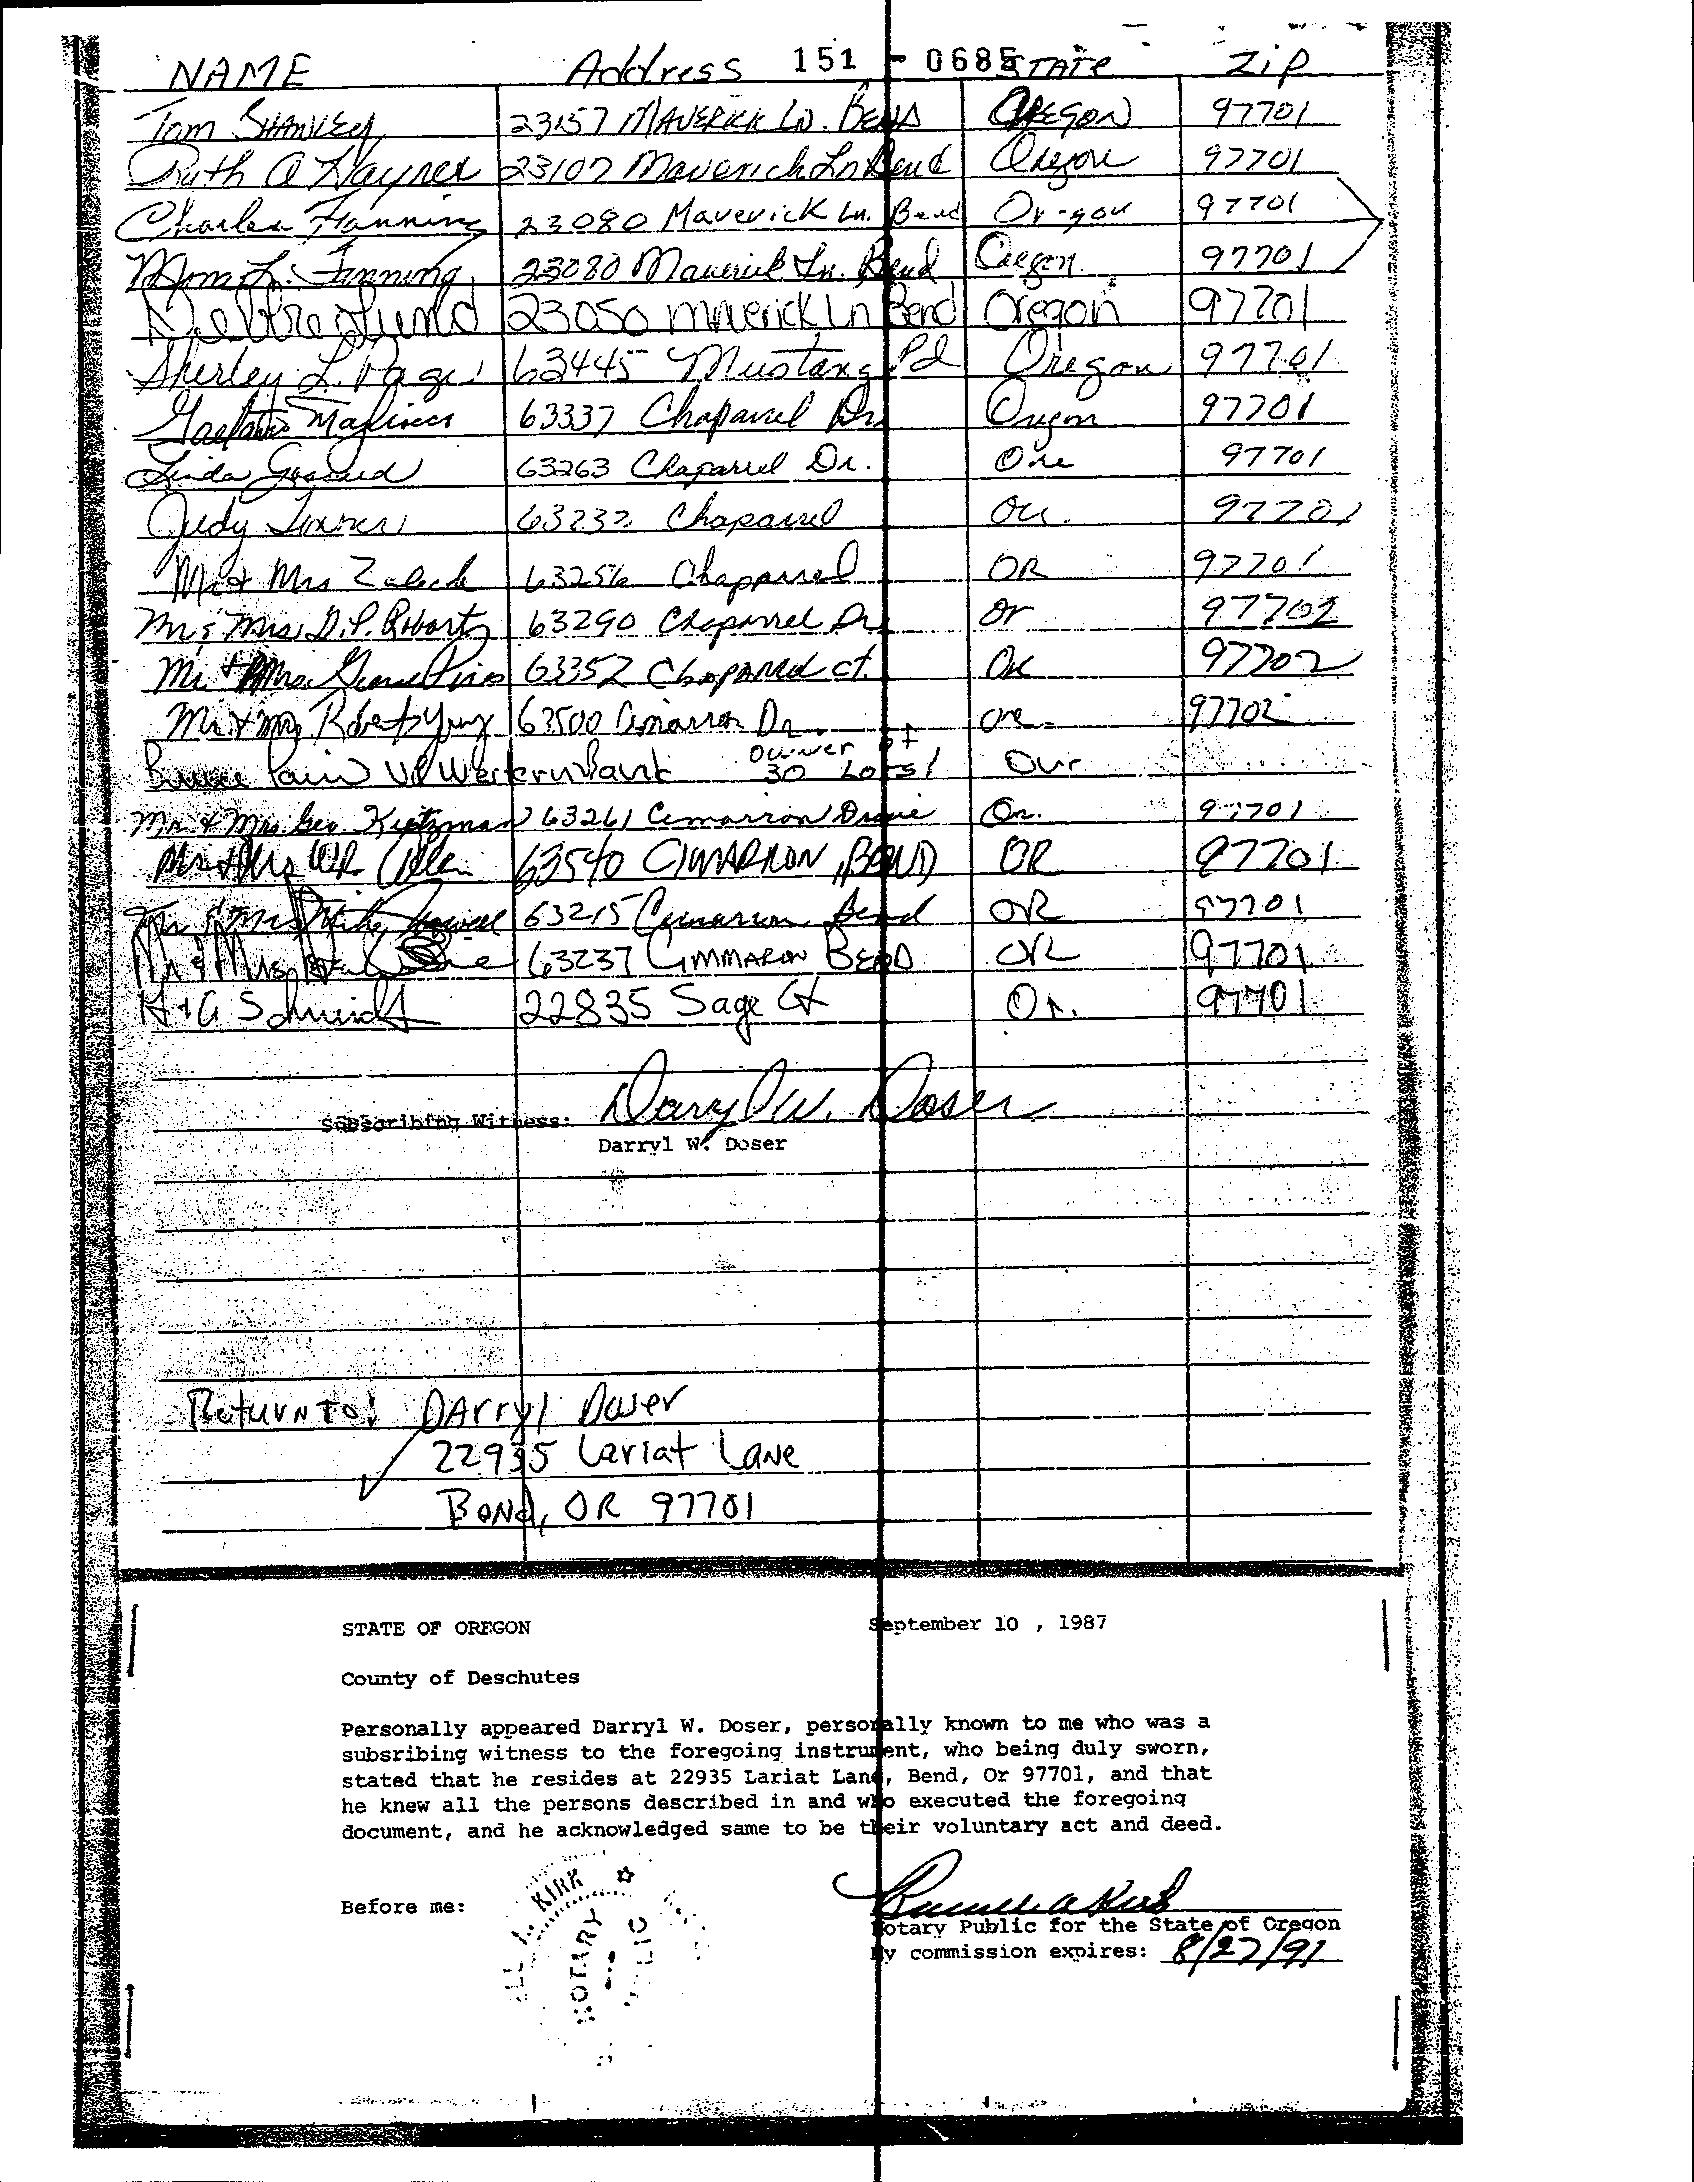 NAME Address 151 - 0685 STATE Zip
Tom SHANLEY 23157 MAVERICK LN. BEND OREGON 97701
Ruth A Hayner 23107 Maverick Ln Bend Oregon 97701
Charles Fanning 23080 Maverick Ln. Bend Oregon 97701
Fanning 23080 Maverick Ln. Bend Oregon 97701
23050 Maverick Ln Bend Oregon 97701
Sherley L. Page 63445 Mustang Rd Oregon 97701
63337 Chaparrel Dr Oregon 97701
Linda 63263 Chaparrel Dr. Ore 97701
Judy 63232 Chaparrel Or. 97701
Mr & Mrs 63256 Chapparrel OR 97701
Mr & Mrs. D.P. Robartz 63290 Chaparrel Dr Or 97702
Mr. & Mrs. 63352 Chaparrel ct. Or 97702
Mr & Mrs Robert Young 63500 Cimarron Dr. Ore. 97702
Pain VP Western Bank owner of
30 Lots!
Mr. & Mrs. Geo. Kietzman 63261 Cimarron Drive Or. 97701
Mr & Mrs WR. Allen 63540 CIMARRON, BEND OR 97701
Mr & Mrs Mike 63215 Cimarron Bend OR 97701
Mr & Mrs 63237 CIMMARON BEND OR 97701
H & G Schmidt 22835 Sage Ct Or. 97701
Subscribing Witness: Darryl W. Doser
Darryl W. Doser
Return To! DArryl Doser
22935 Lariat LANe
BeNd, OR 97701
STATE OF OREGON September 10 , 1987
County of Deschutes
Personally appeared Darryl W. Doser, personally known to me who was a
subsribing witness to the foregoing instrument, who being duly sworn,
stated that he resides at 22935 Lariat Lane, Bend, Or 97701, and that
he knew all the persons described in and who executed the foregoing
document, and he acknowledged same to be their voluntary act and deed.
KIRK
NOTARY
Before me:
Notary Public for the State of Oregon
My commission expires: 8/27/91